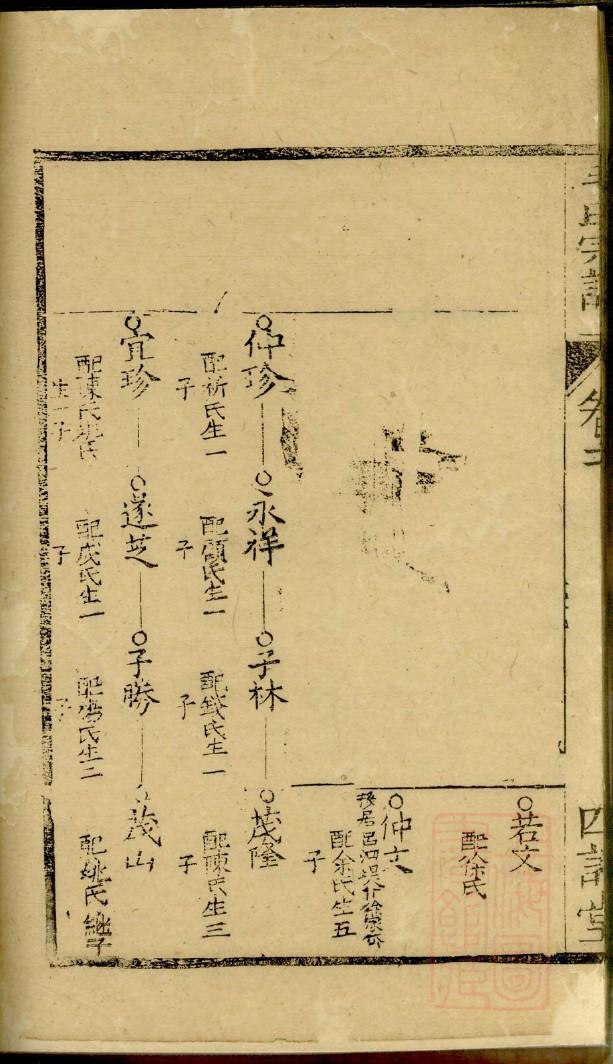 宗譜
卷
四訓堂
若文
配徐氏
仲文
配余氏生五
子
仲珍
配祈氏生一
子
永祥
配顧氏生一
子
子林
配錢氏生一
子
茂隆
配陳氏生三
子
宜珍
配陳氏
生一子
遂芝
配成氏生一
子
子勝
配馮氏生二
子
茂山
配姚氏繼子